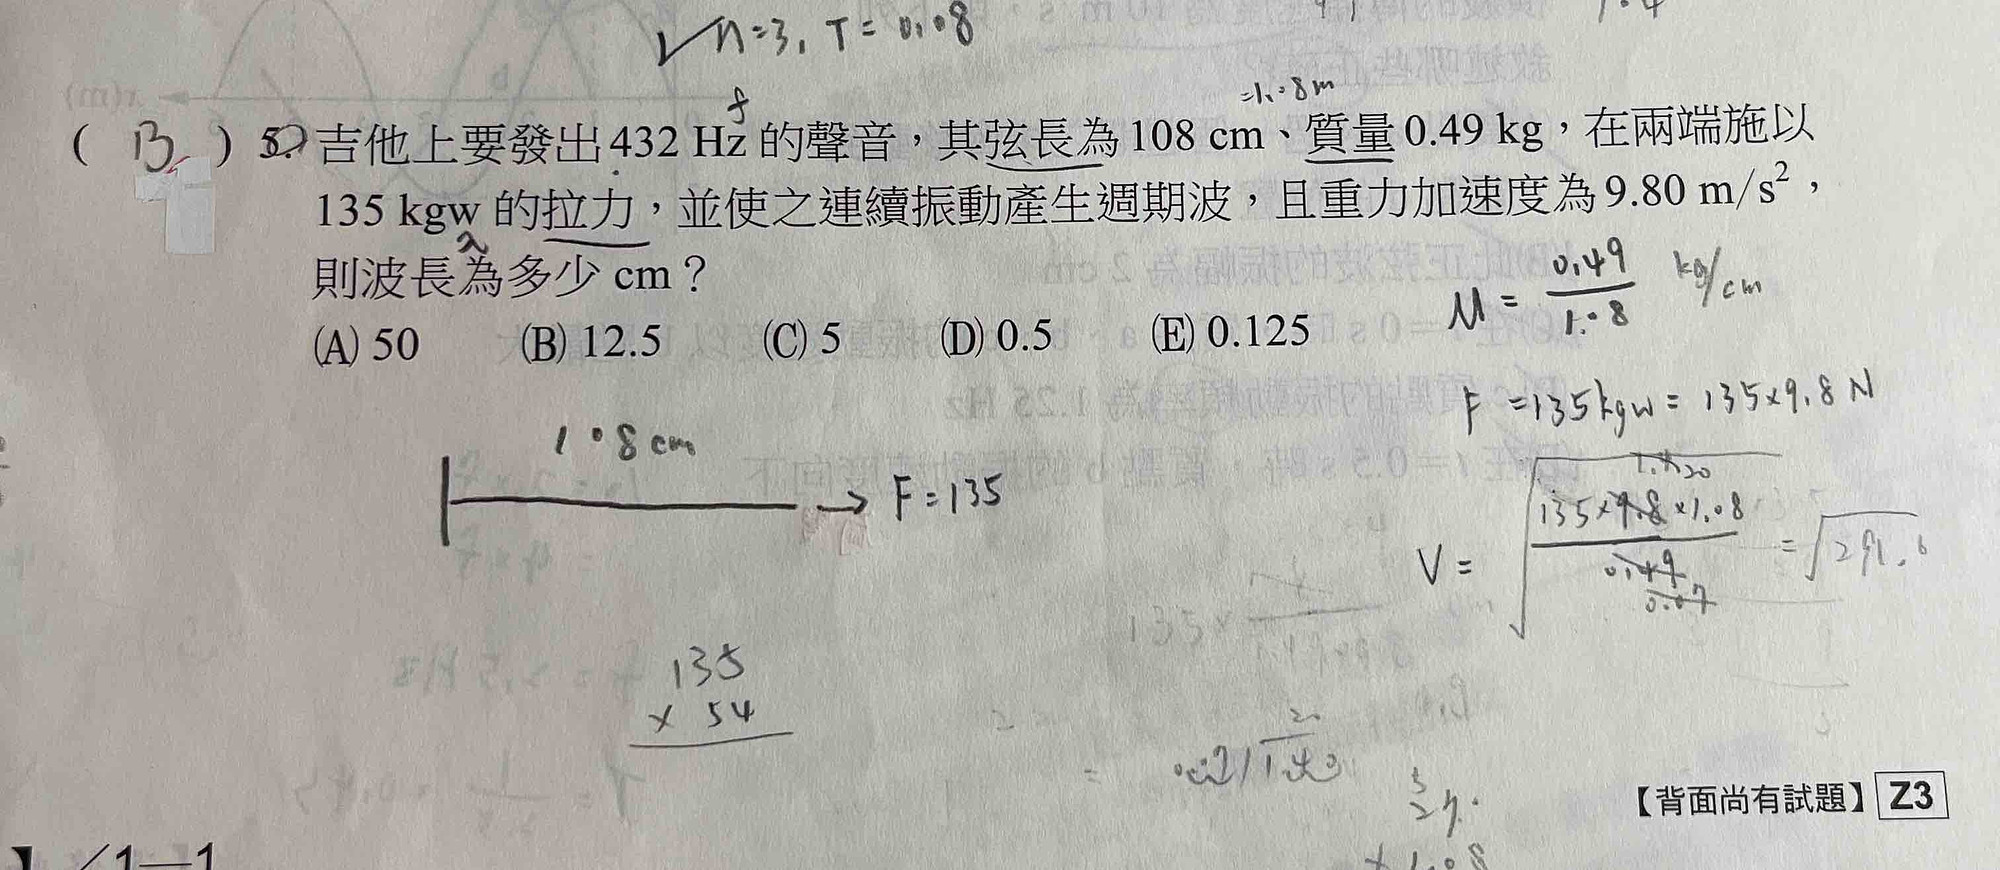 √n=3, T=0.08
f
=1.08m
( B ) 5. 吉他上要發出 432 Hz 的聲音，其弦長為 108 cm、質量 0.49 kg，在兩端施以
135 kgw 的拉力，並使之連續振動產生週期波，且重力加速度為 9.80 m/s²，
λ
則波長為多少 cm？
(A) 50 (B) 12.5 (C) 5 (D) 0.5 (E) 0.125
M = 0.49/1.08 kg/cm
F = 135kgw = 135×9.8 N
1.08 cm
F = 135
V = √(135×9.8×1.08 / 0.49) = √291.6
20
0.07
135
× 54
【背面尚有試題】 Z3
】 ／1—1